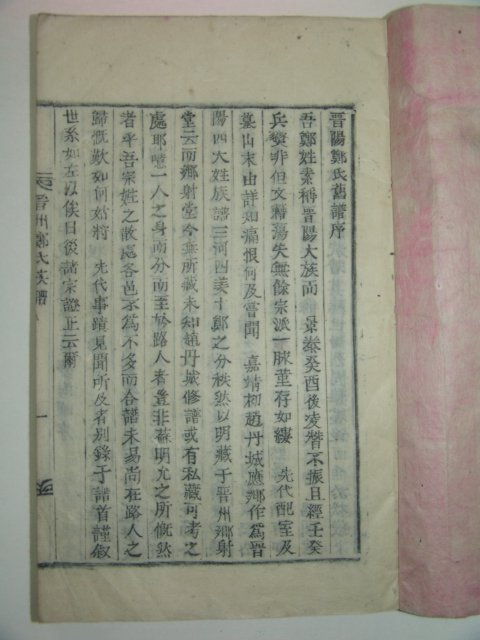 晋陽鄭氏舊譜序
吾鄭姓素稱晋陽大族而 景泰癸酉後凌替不振且經壬癸
兵燹非但文籍蕩失無餘宗派一脉菫存如縷 先代配室及
墓山末由詳知痛恨何及嘗聞 嘉靖初趙丹城應卿作爲晋
陽四大姓族譜三河四姜十鄭之分秩然以明藏于晋州鄉射
堂云而鄉射堂今無所藏未知趙丹城修譜或有私藏可考之
處耶噫一人之身而分而至於路人者豈非蘇明允之所慨然
者乎吾宗姓之散處各邑不爲不多而合譜未易尚在路人之
歸慨歎如何姑將 先代事蹟見聞所及者别錄于譜首謹叙
世系如左以俟日後諸宗證正云爾
晋州鄭氏族譜 一